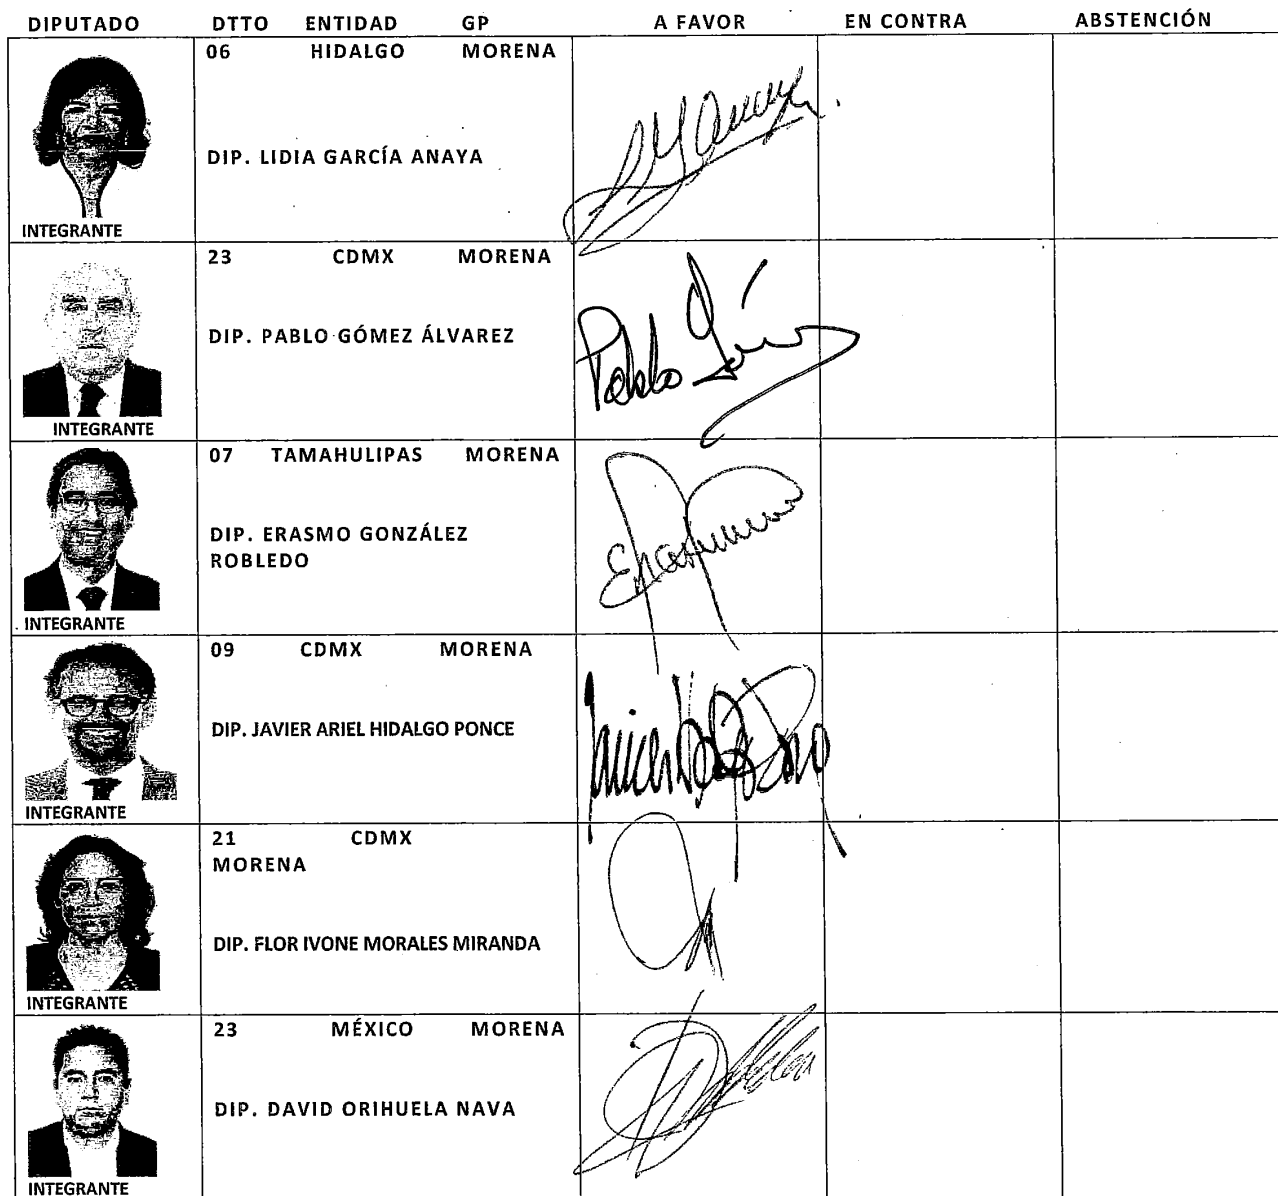 DIPUTADO DTTO ENTIDAD GP A FAVOR EN CONTRA ABSTENCIÓN
06 HIDALGO MORENA
DIP. LIDIA GARCÍA ANAYA
INTEGRANTE
23 CDMX MORENA
DIP. PABLO GÓMEZ ÁLVAREZ
Pablo Góm
INTEGRANTE
07 TAMAHULIPAS MORENA
DIP. ERASMO GONZÁLEZ
ROBLEDO
INTEGRANTE
09 CDMX MORENA
DIP. JAVIER ARIEL HIDALGO PONCE
INTEGRANTE
21 CDMX
MORENA
DIP. FLOR IVONE MORALES MIRANDA
INTEGRANTE
23 MÉXICO MORENA
DIP. DAVID ORIHUELA NAVA
INTEGRANTE